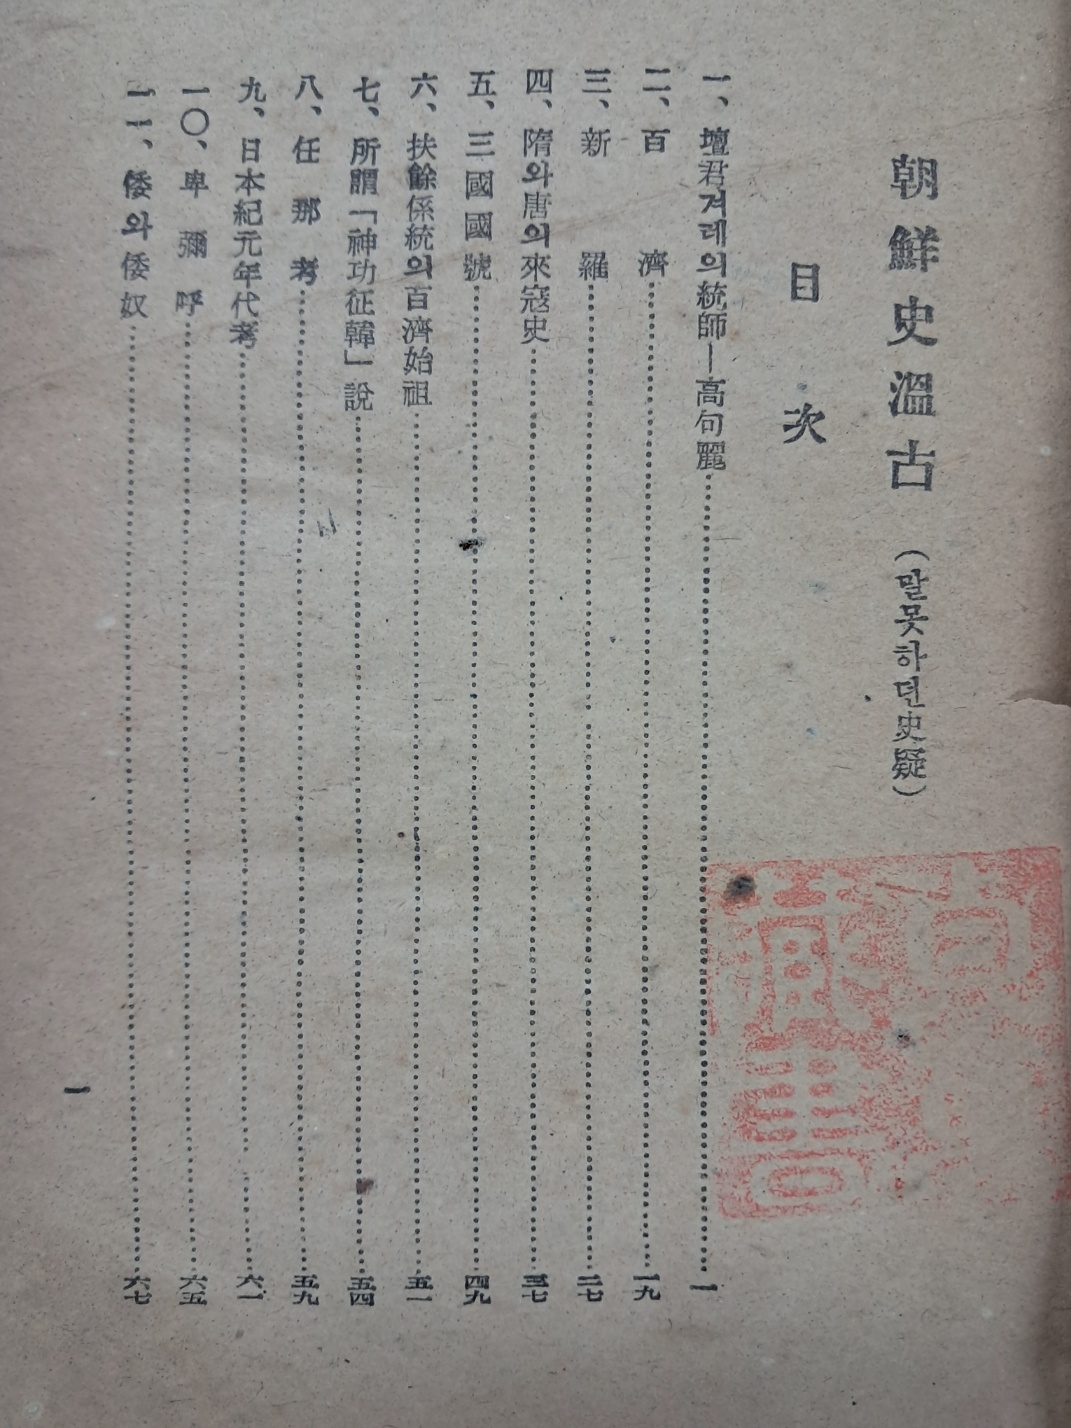 朝鮮史溫古 (말못하던史疑)
目次
一、壇君겨레의統師—高句麗……一
二、百濟……一九
三、新羅……二七
四、隋와唐의來寇史……三七
五、三國國號……四九
六、扶餘係統의百濟始祖……五一
七、所謂「神功征韓」說……五四
八、任那考……五九
九、日本紀元年代考……六一
一〇、卑彌呼……六五
一一、倭와倭奴……六七
一
藏書